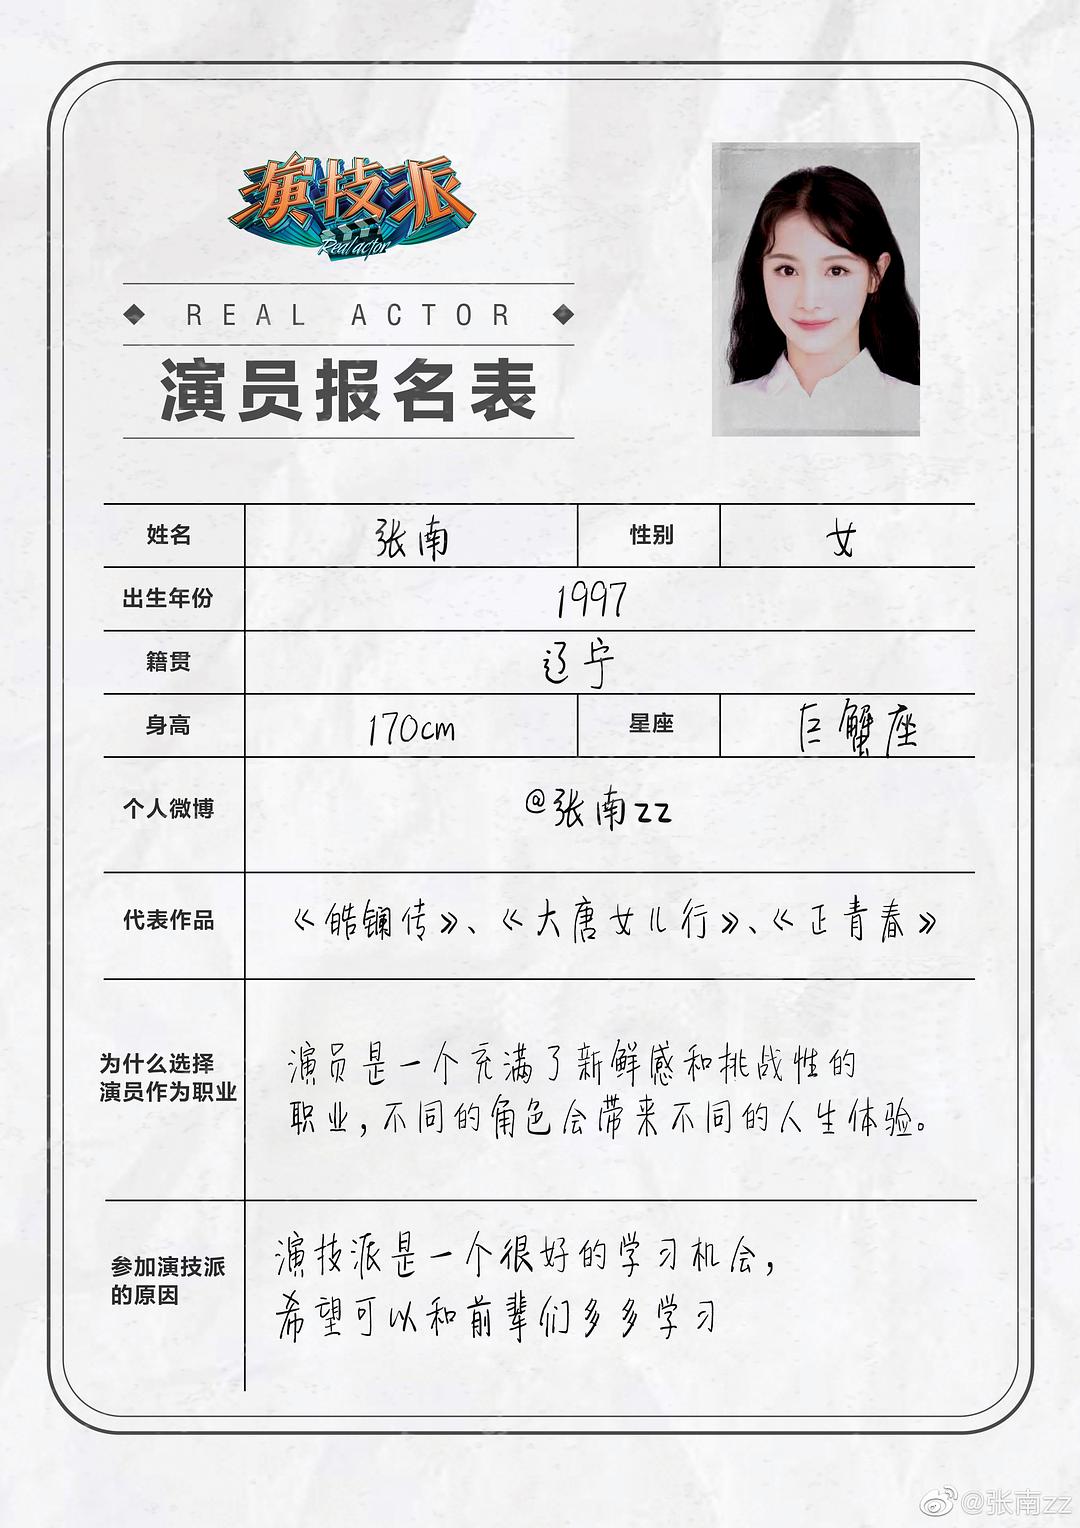 演技派
Real actor
REAL ACTOR
演员报名表
姓名 张南 性别 女
出生年份 1997
籍贯 辽宁
身高 170cm 星座 巨蟹座
个人微博 @张南zz
代表作品 《皓镧传》、《大唐女儿行》、《正青春》
为什么选择
演员作为职业
演员是一个充满了新鲜感和挑战性的
职业，不同的角色会带来不同的人生体验。
参加演技派
的原因
演技派是一个很好的学习机会，
希望可以和前辈们多多学习
@张南zz